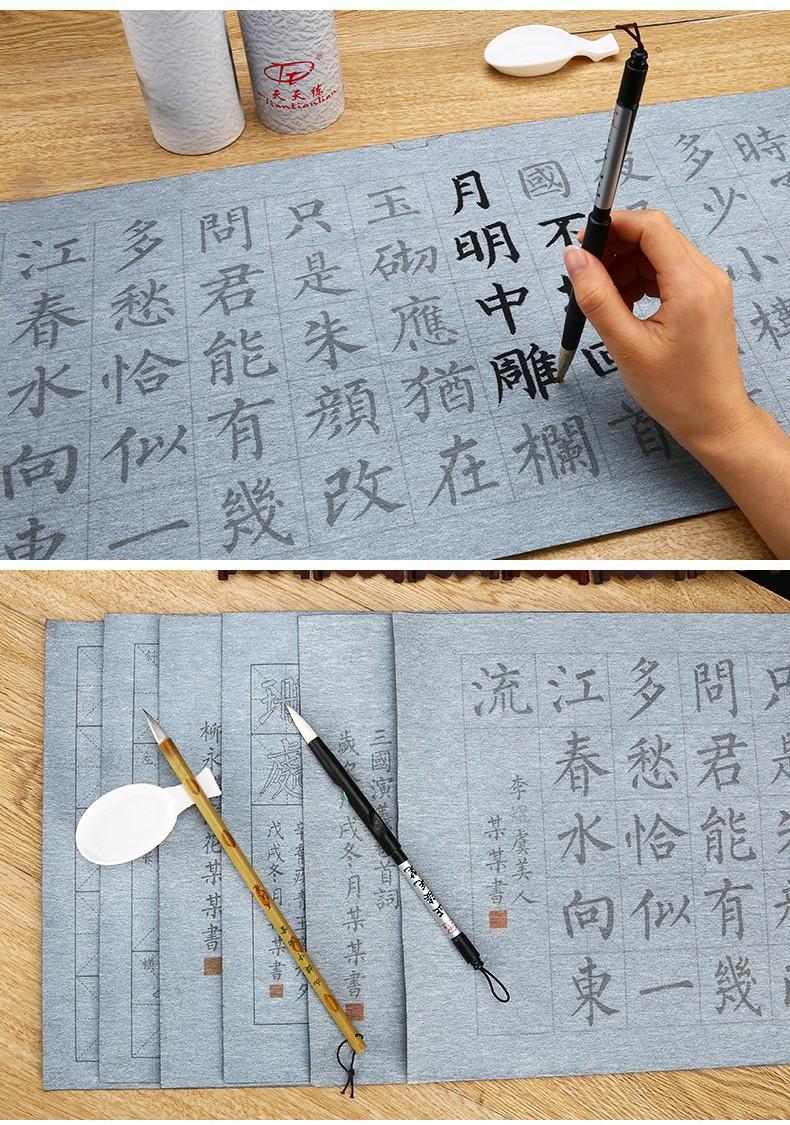 天天练
Tiantianlian
時
多少小樓
國不回首
月明中雕欄
玉砌應猶在
只是朱顏改
問君能有幾
多愁恰似一
江春水向東
只是
問君能有幾
多愁恰似一
江春水向東
流
李煜虞美人
某某書
三國演義首詞
冬月某某書
珊處
戊戌冬月某書
柳永
花某某書
左
橫